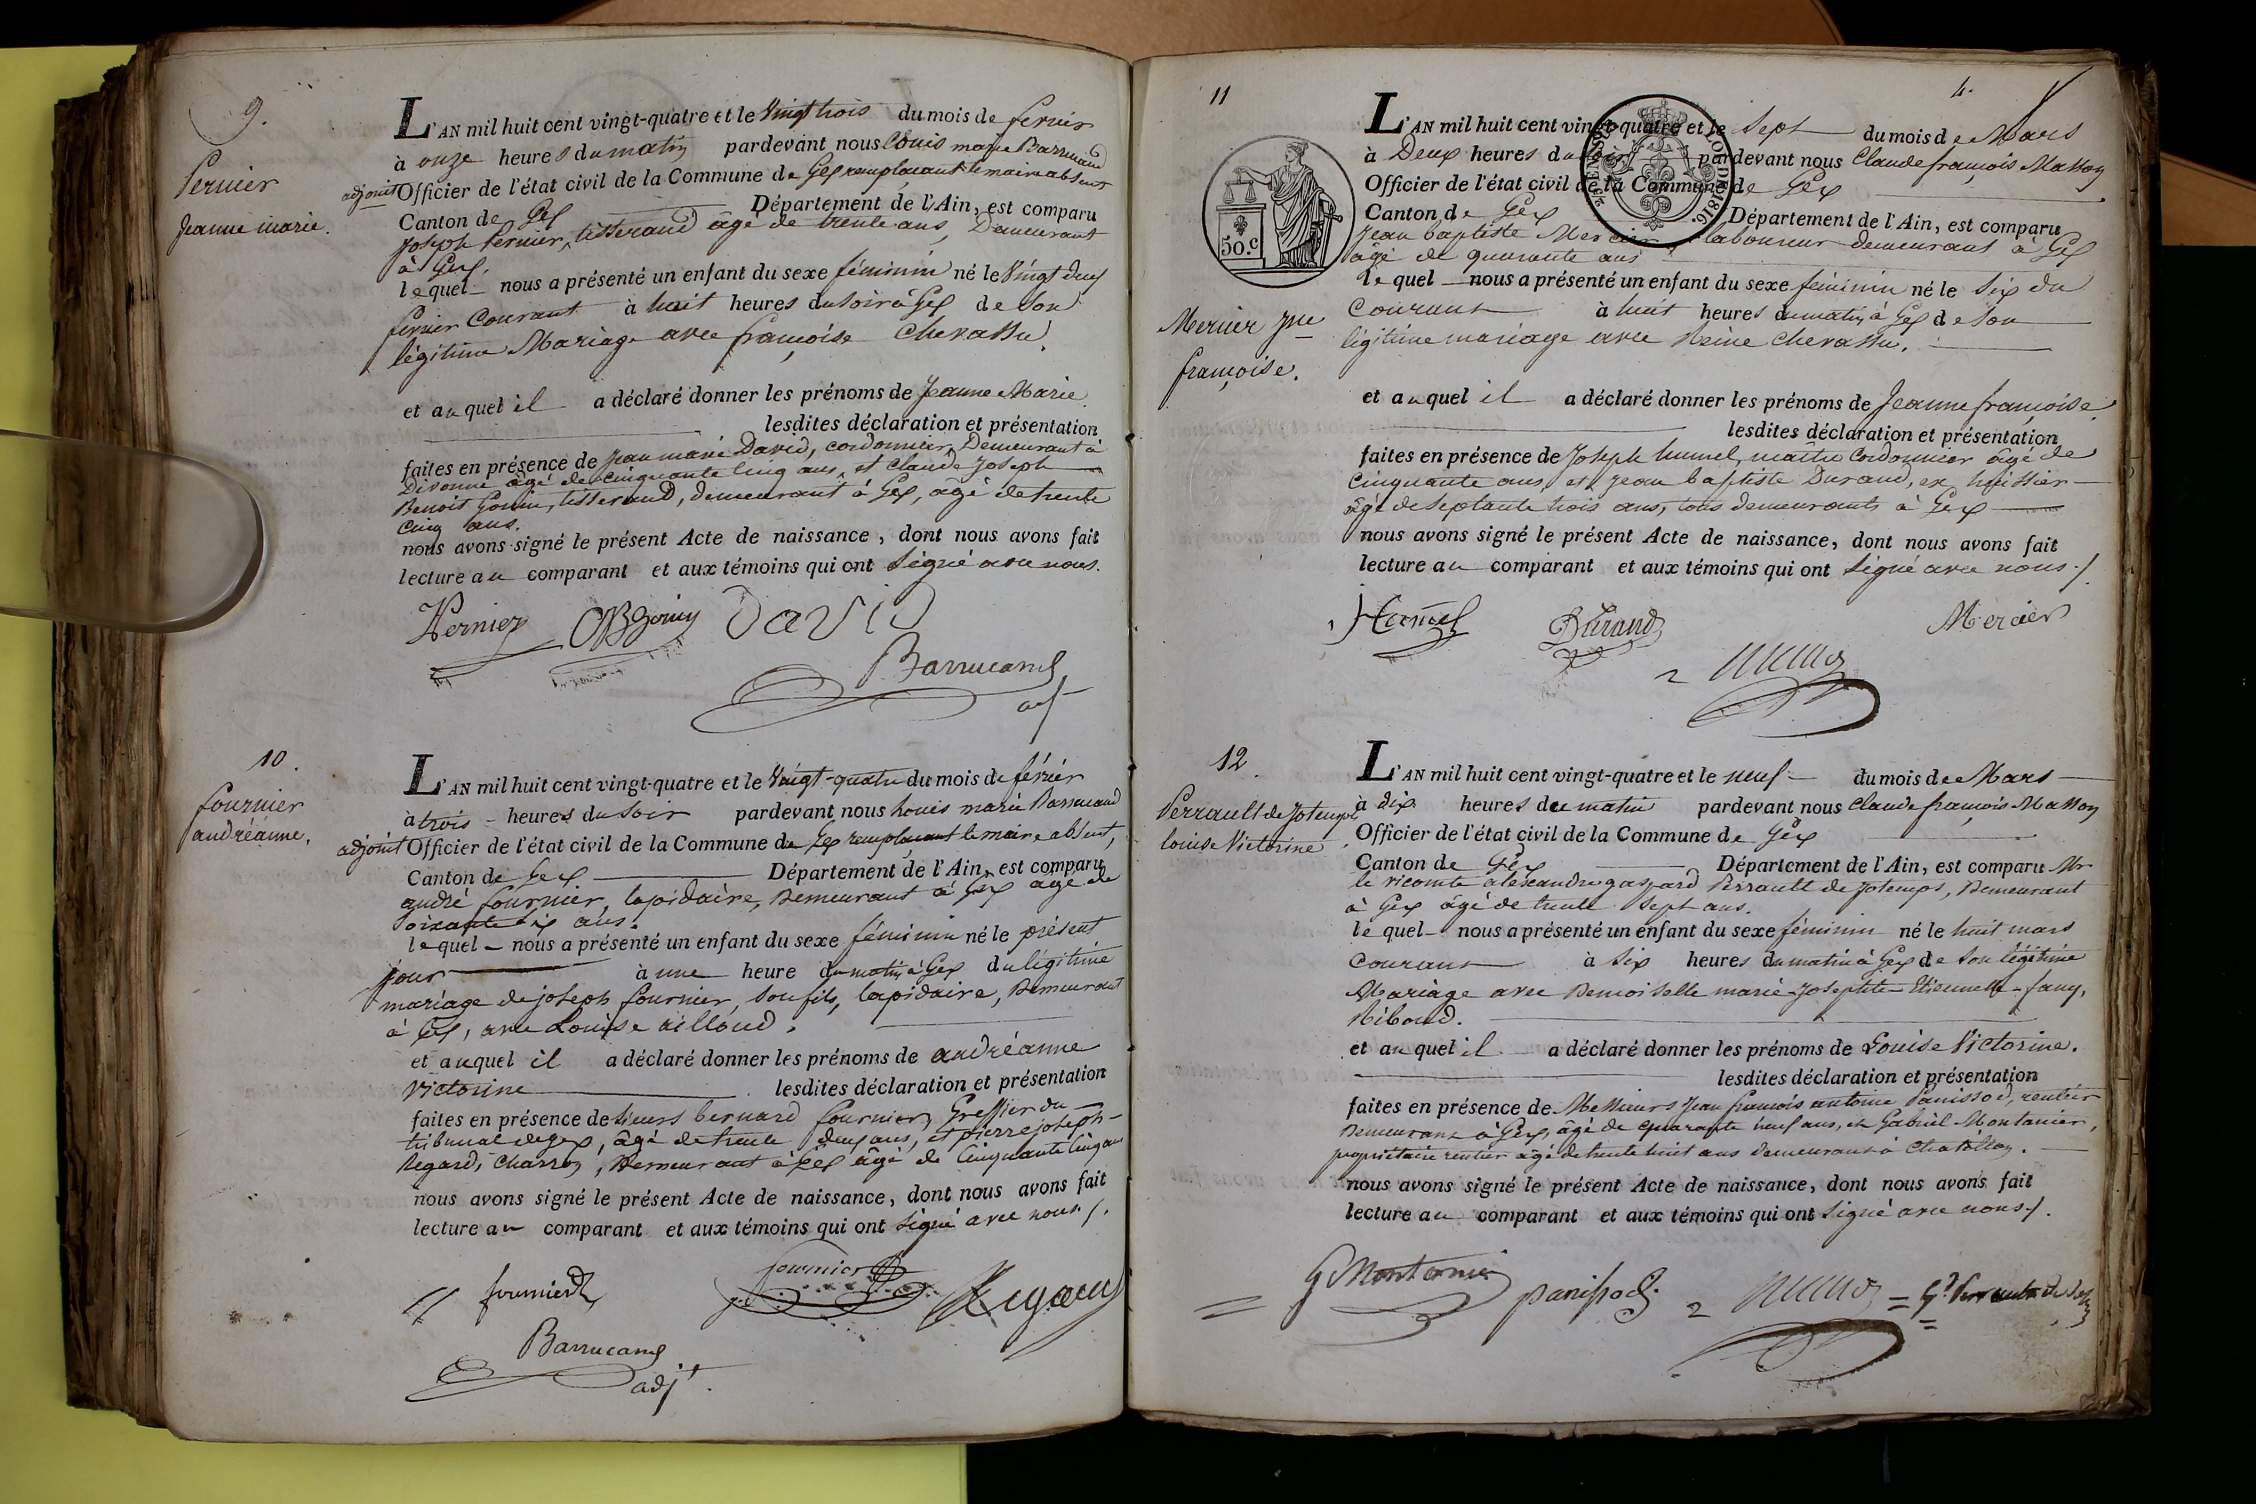 9.
Pernier
Jeanne marie.
L'AN mil huit cent vingt-quatre et le Vingt trois du mois de fevrier
à onze heures du matin pardevant nous Louis marie Barrucand
adjoint Officier de l'état civil de la Commune de Gex remplaçant le maire absent
Canton de Gex Département de l'Ain, est comparu
Joseph Pernier, tisserand âgé de trente ans, Demeurant
à Gex,
lequel nous a présenté un enfant du sexe féminin né le Vingt deux
fevrier Courant à huit heures du soir à Gex de son
légitime Mariage avec françoise Chevassu.
et auquel il a déclaré donner les prénoms de Jeanne Marie
lesdites déclaration et présentation
faites en présence de Jean marie David, cordonnier, Demeurant à
Divonne âgé de cinquante cinq ans, et Claude Joseph
Benoit Gonin, tisserand, demeurant à Gex, âgé de trente
cinq ans.
nous avons signé le présent Acte de naissance, dont nous avons fait
lecture au comparant et aux témoins qui ont signé avec nous.
Pernier CJBGonin David
Barrucand
adj
10.
fournier
andréanne.
L'AN mil huit cent vingt-quatre et le Vingt-quatre du mois de février
à trois heures du soir pardevant nous Louis marie Barrucand
adjoint Officier de l'état civil de la Commune de Gex remplaçant le maire absent,
Canton de Gex Département de l'Ain, est comparu
andré fournier, lapidaire, Demeurant à Gex âgé de
soixante six ans.
lequel nous a présenté un enfant du sexe féminin né le présent
jour à une heure du matin à Gex du légitime
mariage de joseph fournier, son fils, lapidaire, Demeurant
à Gex, avec Louise
et auquel il a déclaré donner les prénoms de andréanne
Victorine lesdites déclaration et présentation
faites en présence de sieurs bernard fournier, Greffier du
tribunal de gex, âgé de trente deux ans, et pierre joseph
Regard, Charron, Demeurant à Gex âgé de Cinquante Cinq ans
nous avons signé le présent Acte de naissance, dont nous avons fait
lecture au comparant et aux témoins qui ont signé avec nous /.
fournier fournier Regard
Barrucand
adjt.
11
4.
50.c
L'AN mil huit cent vingt-quatre et le sept du mois de Mars
à Deux heures du soir pardevant nous Claude françois Masson
Officier de l'état civil de la Commune de Gex
Canton de Gex Département de l'Ain, est comparu
Jean baptiste Mercier, laboureur demeurant à Gex
âgé de quarante ans
Mercier Jne
françoise.
lequel nous a présenté un enfant du sexe féminin né le six du
Courant à huit heures du matin à Gex de son
légitime mariage avec Reine Chevassu.
et auquel il a déclaré donner les prénoms de Jeanne françoise
lesdites déclaration et présentation
faites en présence de Joseph hummel, maître Cordonnier âgé de
cinquante ans, et jean baptiste Durand, ex huissier
âgé de septante trois ans, tous demeurants à Gex
nous avons signé le présent Acte de naissance, dont nous avons fait
lecture au comparant et aux témoins qui ont signé avec nous /.
Hummel Durand Mercier
12
Perrault de Jotemps
louise Victorine.
L'AN mil huit cent vingt-quatre et le neuf du mois de Mars
à dix heures du matin pardevant nous Claude françois Masson
Officier de l'état civil de la Commune de Gex
Canton de Gex Département de l'Ain, est comparu Mr
le vicomte alexandre gaspard Perrault de Jotemps, Demeurant
à Gex âgé de trente sept ans.
lequel nous a présenté un enfant du sexe féminin né le huit mars
Courant à six heures du matin à Gex de son légitime
Mariage avec Demoiselle marie Josephte Etiennette fany,
Riboud.
et auquel il a déclaré donner les prénoms de Louise Victorine.
lesdites déclaration et présentation
faites en présence de Messieurs Jean françois antoine Panissod, rentier
Demeurant à Gex, âgé de quarante neuf ans, et Gabriel Montanier,
propriétaire rentier âgé de trente huit ans demeurant à Chatillon.
nous avons signé le présent Acte de naissance, dont nous avons fait
lecture au comparant et aux témoins qui ont signé avec nous /.
G Montanier panissod